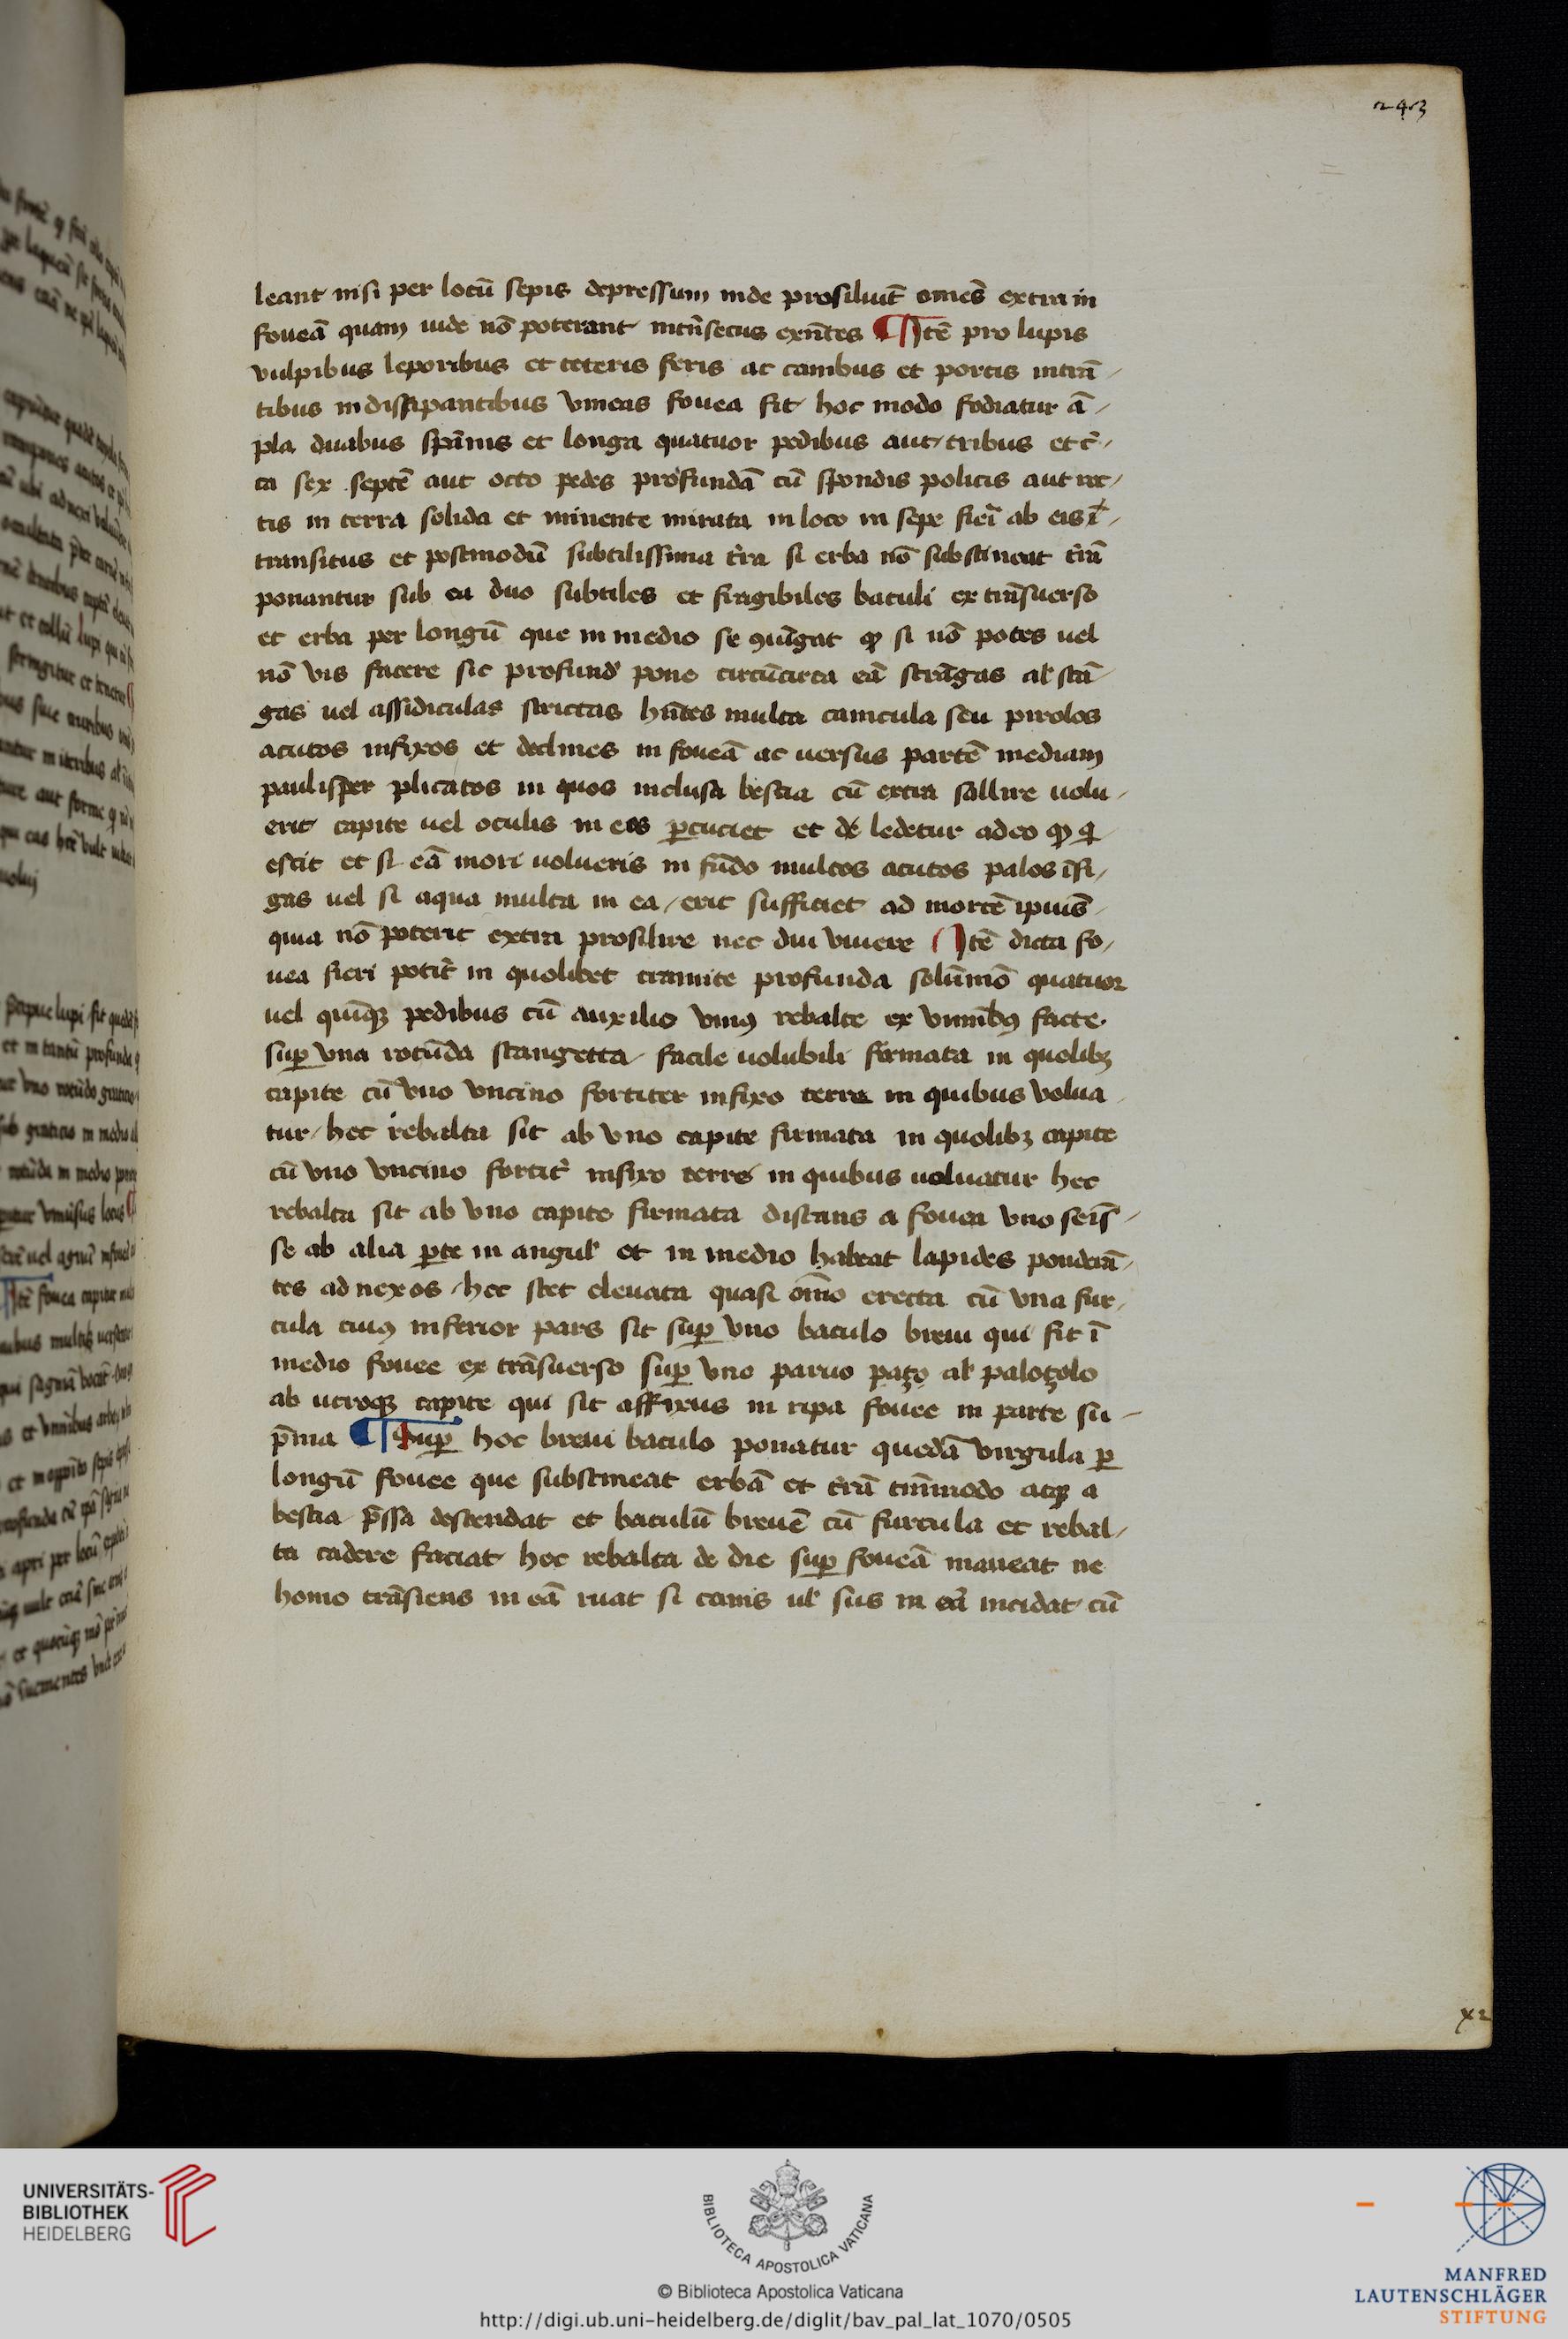 243
leant nisi per locū sepis depressum inde prosiliūt omēs extra in
foueā quam uide nō poterant intn̄secus exn̄tes ¶ Itē pro lupis
vulpibus leporibus et ceteris feris ac canibus et porcis intrā-
tibus in dissipantibus vineas fouea fit hoc modo fodiatur ā-
pla duabus spānis et longa quatuor pedibus aut tribus et c̄-
ca sex septē aut octo pedes profundā cū spondis politis aut rec-
tis in terra solida et minente mirata in loco in sepe fieī ab eis ī-
transitus et postmodū subtilissima tr̄a si erba nō substineat tr̄ā
ponantur sub ea duo subtiles et fragibiles baculi ex trāsuerso
et erba per longū que in medio se 9iūgāt qp si nō potes uel
nō vis facere sic profund' pone circūcirca eā strāgas al' stā-
gas uel assidiculas strictas hn̄tes multa canicula seu pirolos
acutos infixos et declines in foueā ac uersus partē mediam
paulisper plicatos in quos inclusa bestia cū extra sallire uolu-
erit capite uel oculis in eos ꝑcuciet et de ledetur adeo qp q̄
escit et si eā mori uolueris in fūdo multos acutos palos īfi-
gas uel si aqua multa in ea erit sufficiet ad mortē ipiuˢ
quia nō poterit extra prosilire nec diu viuere ¶ Itē dicta fo-
uea fieri potit̄ in quolibet tramite profunda solūmō quatuor
uel quīqꝫ pedibus cū auxilio vniꝰ rebalte ex viminibꝰ facte
suꝑ vna rotūda stangetta facile uolubili firmata in quolibꝫ
capite cū vno vncino fortiter infixo terre in quibus volua-
tur hec rebalta sit ab vno capite firmata in quolibꝫ capite
cū vno vncino fortit̄ infixo terre in quibus uoluatur hec
rebalta sit ab vno capite firmata distans a fouea vno seīs-
se ab alia ꝑte in angul' et in medio habeat lapides ponderā-
tes ad nexos hec stet eleuata quasi om̄o erecta cū vna fur-
cula cuiꝰ inferior pars sit suꝑ vno baculo breui qui fit ī
medio fouee ex trāsuerso suꝑ vno paruo paço al' paloçolo
ab utroqꝫ capite qui sit affixus in ripa fouee in parte su-
p̄ma ¶ Suꝑ hoc breui baculo ponatur quedā virgula ꝑ
longū fouee que substineat erbā et tr̄ā tm̄modo atqꝫ a
bestia p̄ssa descendat et baculū breuē cū furcula et rebal-
ta cadere faciat hec rebalta de die suꝑ foueā maneat ne
homo trāsiens in eā ruat si canis ul' sus in eā incidat cū
x2
UNIVERSITÄTS-
BIBLIOTHEK
HEIDELBERG
BIBLIOTECA APOSTOLICA VATICANA
© Biblioteca Apostolica Vaticana
http://digi.ub.uni-heidelberg.de/diglit/bav_pal_lat_1070/0505
MANFRED
LAUTENSCHLÄGER
STIFTUNG